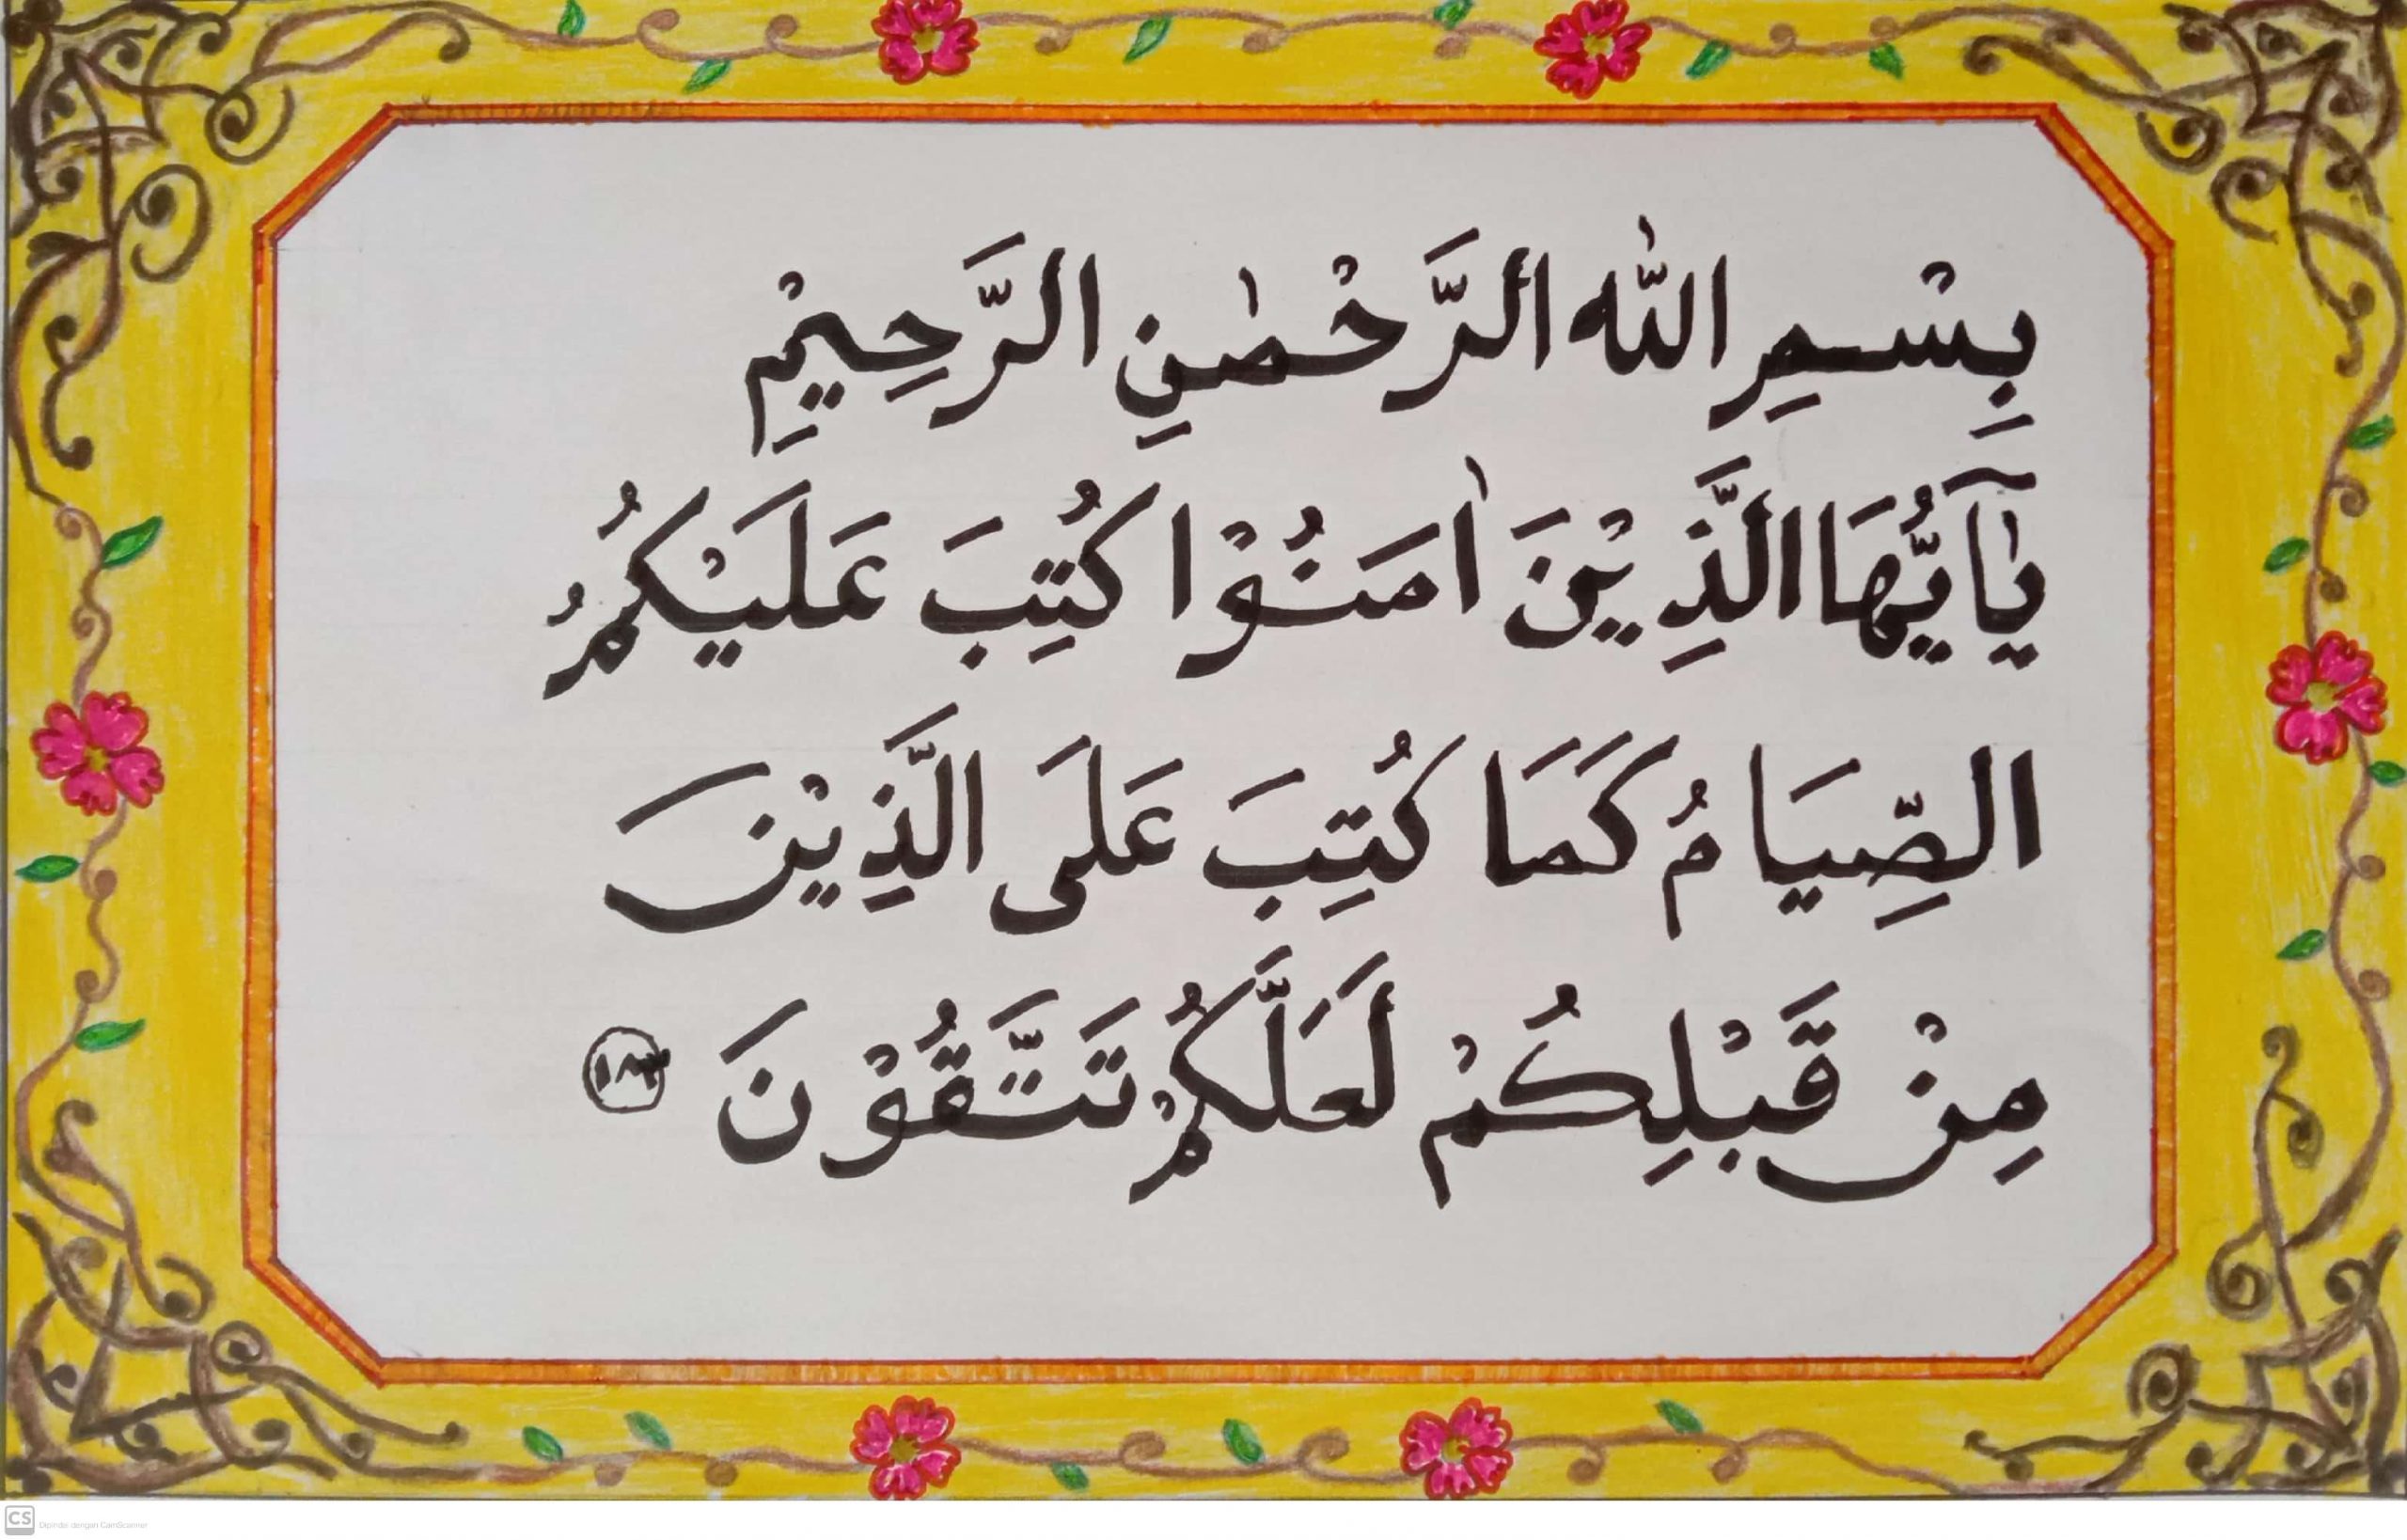 بِسْمِ اللّٰه الرَّحْمٰنِ الرَّحِيْمِ
يٰٓاَيُّهَا الَّذِيْنَ اٰمَنُوْا كُتِبَ عَلَيْكُمُ
الصِّيَامُ كَمَا كُتِبَ عَلَى الَّذِيْنَ
مِنْ قَبْلِكُمْ لَعَلَّكُمْ تَتَّقُوْنَ ١٨٣
CS Dipindai dengan CamScanner